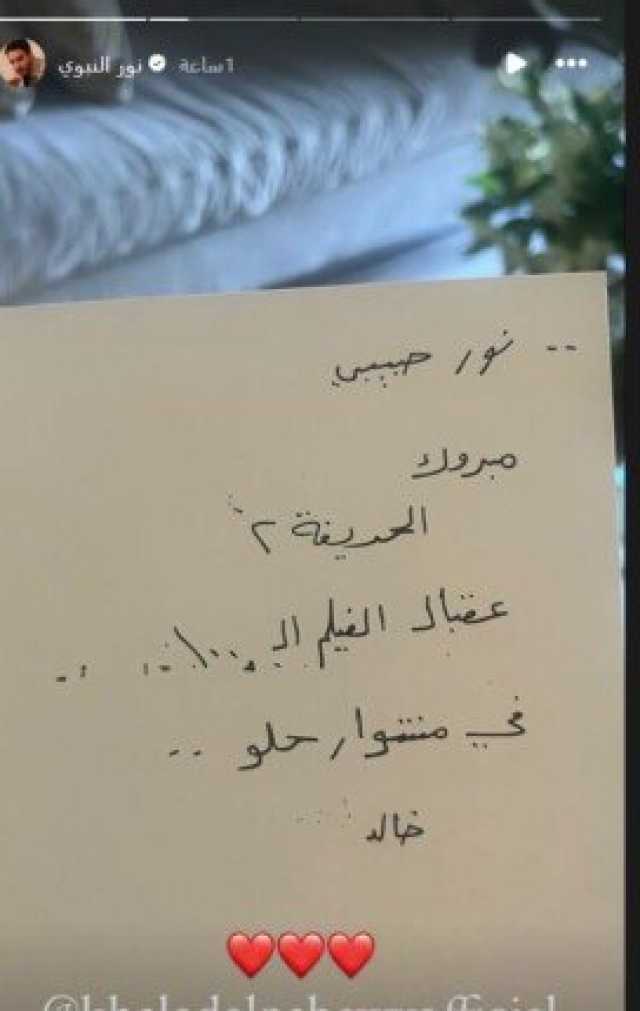 نور النبوي 1 ساعة
نور حبيبي ..
مبروك
الحريفة ٢
عقبال الفيلم الـ ١٠٠
في مشوار حلو ..
خالد
❤️❤️❤️